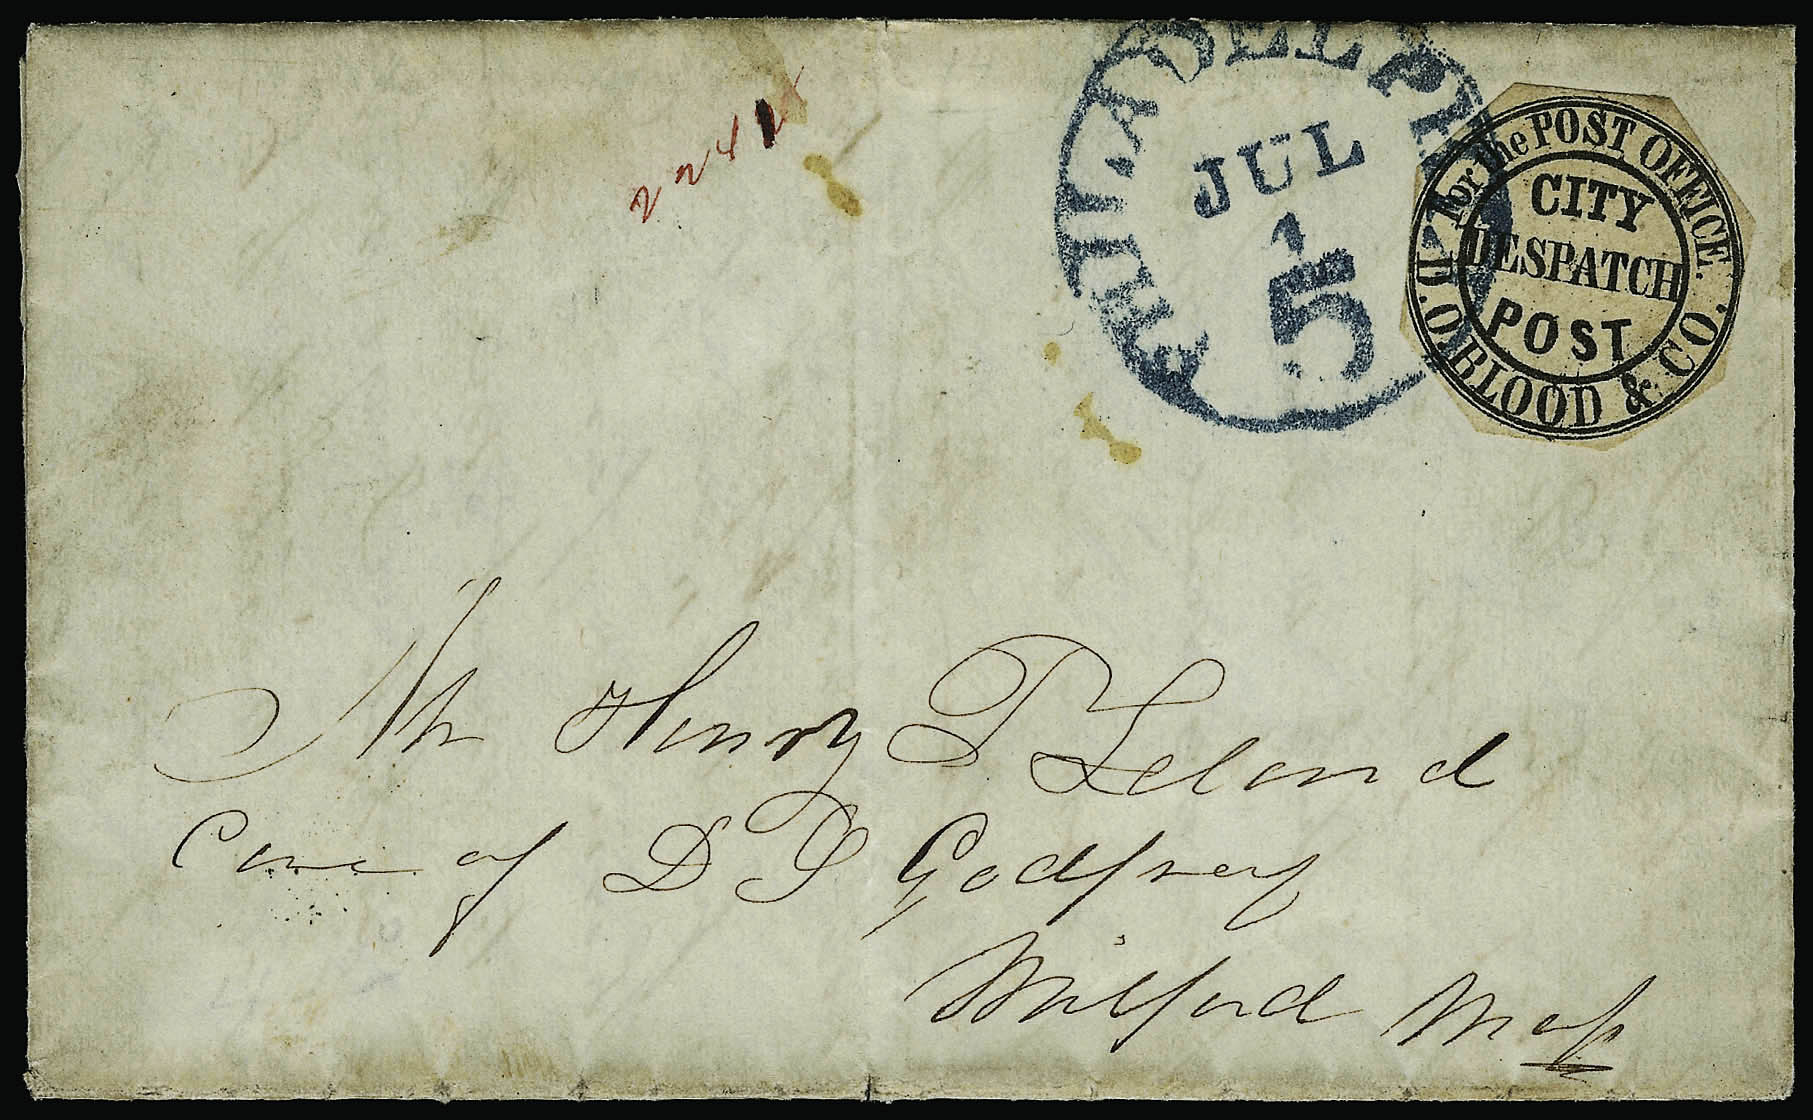 22424
PHILADELPHIA
JUL
1
5
For the POST OFFICE.
CITY
DESPATCH
POST
D.O.BLOOD & CO.
Mr Henry T Leland
Care of D S Godfrey
Milford Mass